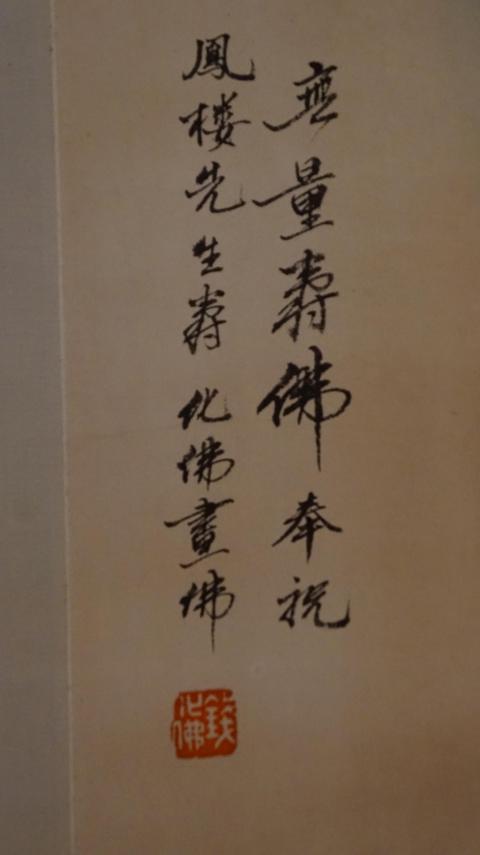 無量壽佛奉祝
鳳楼先生壽化佛畫佛
錢化佛